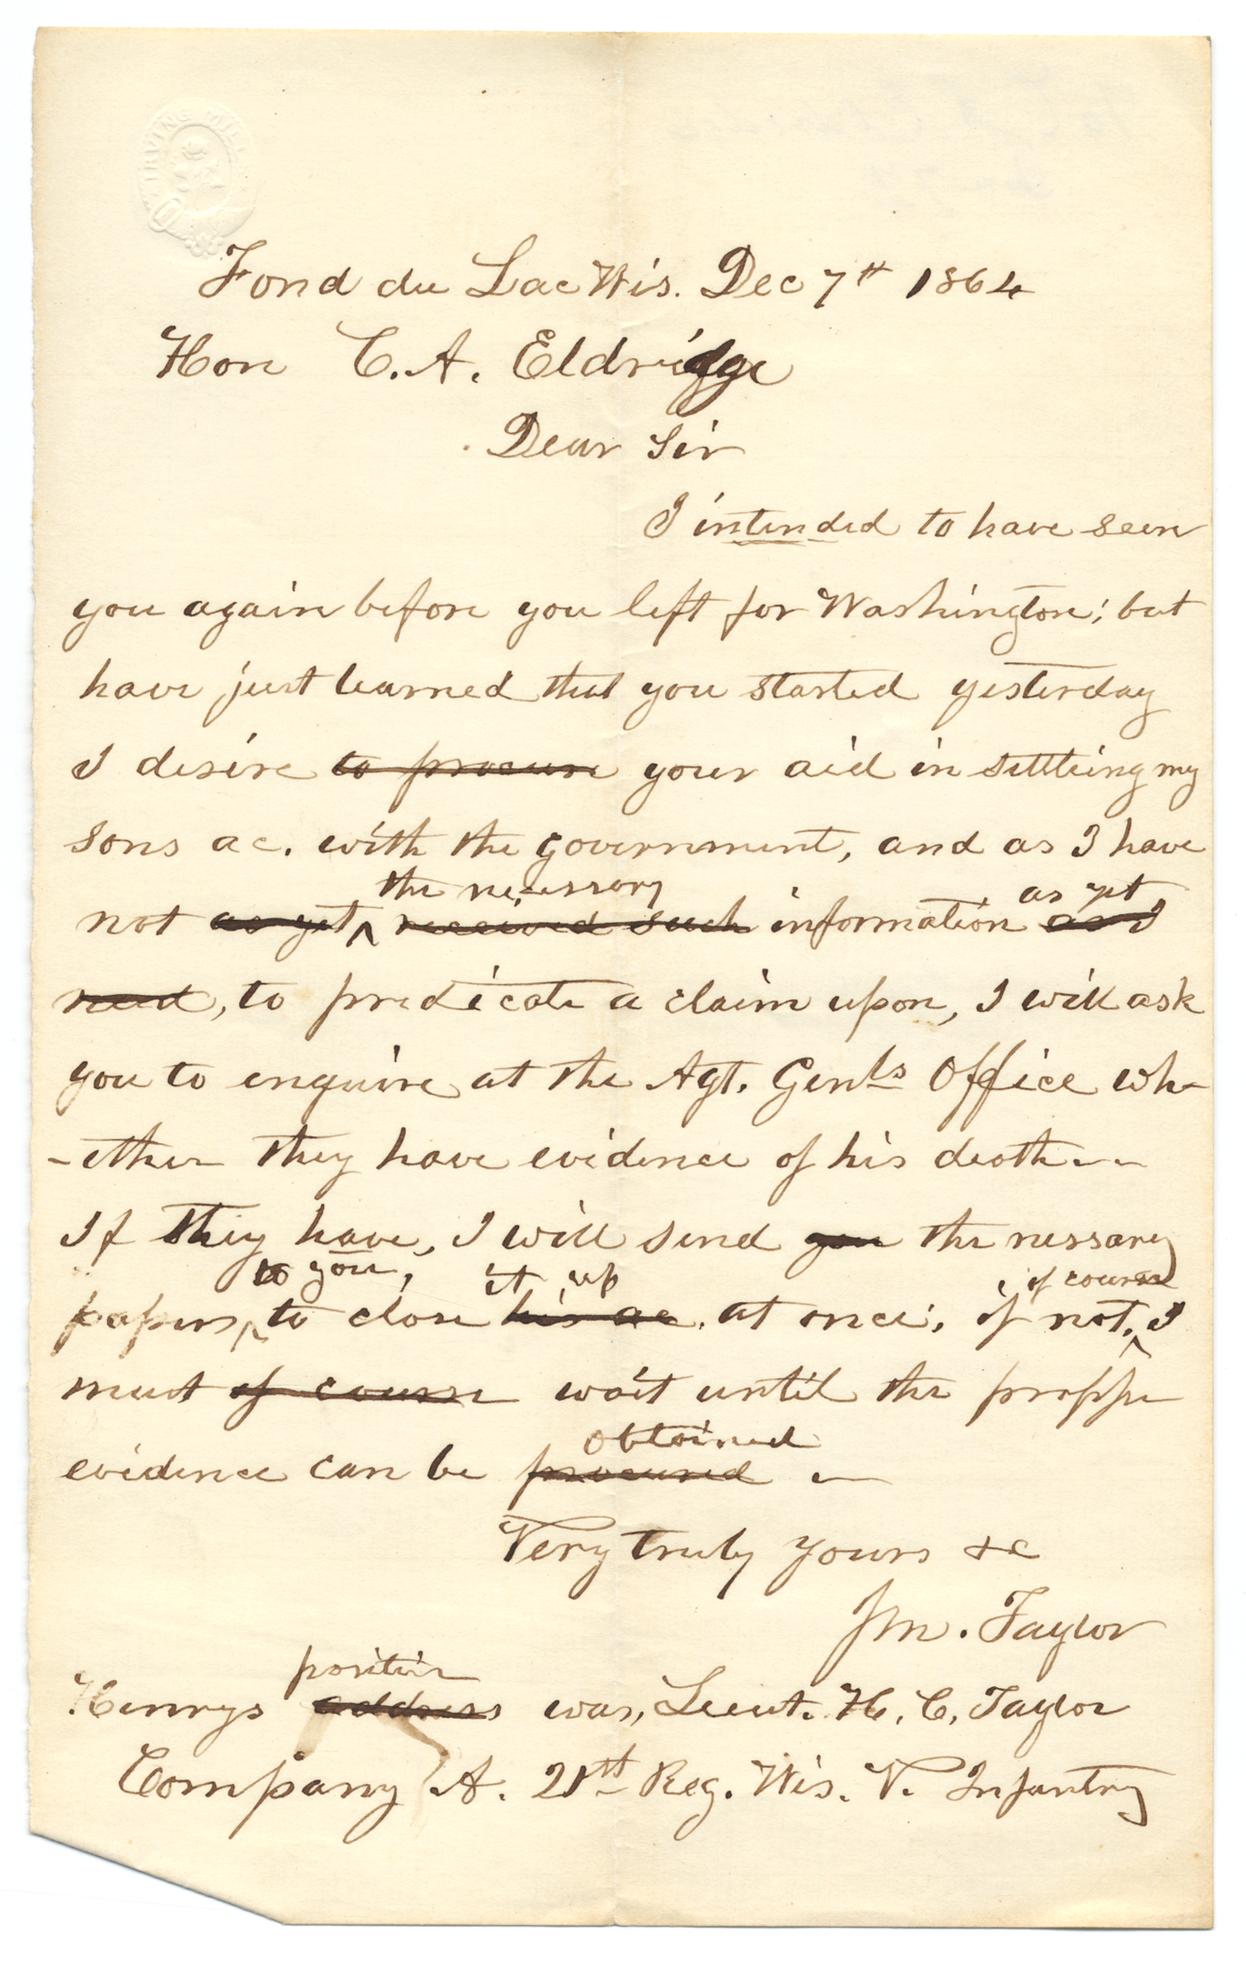 IRVING MILL
Fond du Lac Wis. Dec 7th 1864
Hon C. A. Eldridge
Dear Sir
I intended to have seen
you again before you left for Washington; but
have just learned that you started yesterday
I desire to procure your aid in settleing my
sons ac. with the government, and as I have
the necessary as yet
not as yet ^ received such information as I
need, to predicate a claim upon, I will ask
you to enquire at the Agt. Genls Office wh-
-ether they have evidence of his death--
If they have, I will send you the nessary
to you, it up of course
papers, ^ to close his ac. at once; if not, ^ I
must of course wait until the propper
obtained
evidence can be procured
Very truly yours &c
J M. Taylor
position
Henrys address was, Lieut. H. C. Taylor
Company A. 21st Reg. Wis. V. Infantry